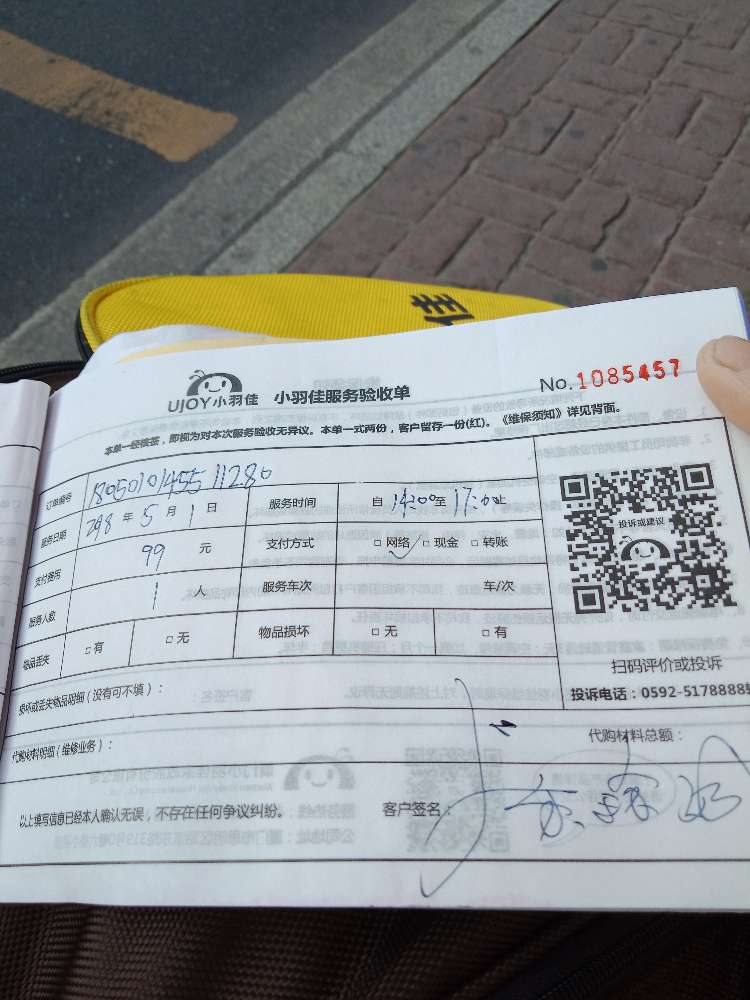 佳
UJOY小羽佳 小羽佳服务验收单 No.1085457
本单一经核签，即视为对本次服务验收无异议。本单一式两份，客户留存一份(红)。《维保须知》详见背面。
订单编号 18050101455 11280
服务日期 2018 年 5 月 1 日 服务时间 自 14:00 至 17:00 止
支付费用 99 元 支付方式 □ 网络 ✓ □ 现金 □ 转账
服务人数 1 人 服务车次 车/次
物品丢失 □ 有 □ 无 物品损坏 □ 无 □ 有
投诉或建议
扫码评价或投诉
投诉电话：0592-5178888转
损坏或丢失物品明细（没有可不填）：
代购材料明细（维修业务）： 代购材料总额：
以上填写信息已经本人确认无误，不存在任何争议纠纷。 客户签名：